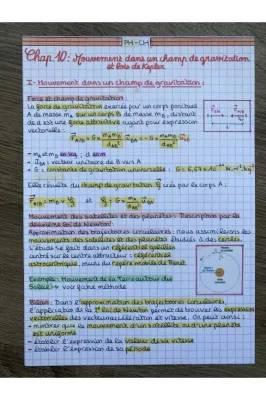 PH-CH
Chap 10: Mouvement dans un champ de gravitation
et lois de Kepler
I- Mouvement dans un champ de gravitation :
Force et champ de gravitation :
La force de gravitation exercée par un corps ponctuel
A de masse mA sur un corps B de masse mB, distant
de d est une force attractive ayant pour expression
vectorielle :
- mA et mB en kg ; d en m
- vecteur unitaire de B vers A
- G : constante de gravitation universelle :
Elle résulte du champ de gravitation créé par le corps A :
Mouvement des satellites et des planètes - Description par la
deuxième loi de Newton :
Approximation des trajectoires circulaires : nous assimilerons les
mouvements des satellites et des planètes étudiés à des cercles.
L'étude se fait dans un référentiel
centré sur le centre attracteur : référentiel
astrocentrique, muni du repère mobile de Frenet.
Exemple : Mouvement de la Terre autour du
Soleil → voir fiche méthode
Bilan : Dans l'approximation des trajectoires circulaires,
l'application de la 2e loi de Newton permet de trouver les expressions
des vecteurs accélération et vitesse. On peut ainsi :
- montrer que le mouvement d'un satellite ou d'une planète
est uniforme
- établir l'expression de la valeur de sa vitesse
- établir l'expression de sa période